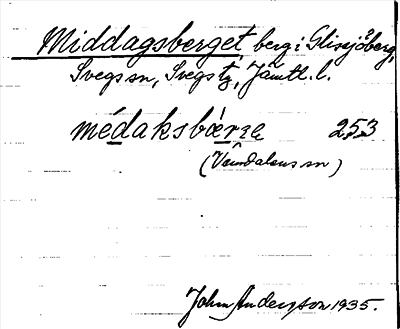 Middagsberget berg i Glissjöberg,
Svegs sn, Svegs tg, Jämtl. l.
médaksbærƨe 253
(Vemdalens sn)
John Anderzson 1935.